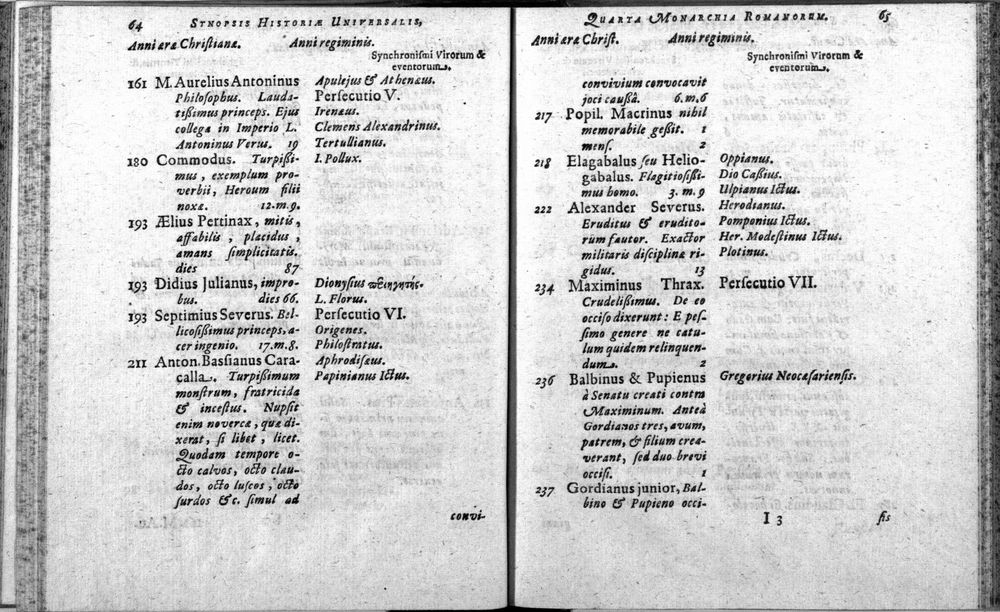 64 SYNOPSIS HISTORIÆ UNIVERSALIS,
Anni æræ Christianæ. Anni regiminis.
Synchroniſmi Virorum &
eventorum.
161 M. Aurelius Antoninus
Philoſophus. Lauda-
tiſſimus princeps. Ejus
collega in Imperio L.
Antoninus Verus. 19
180 Commodus. Turpiſſi-
mus, exemplum pro-
verbii, Heroum filii
noxæ. 12.m.9.
193 Ælius Pertinax, mitis,
affabilis, placidus,
amans ſimplicitatis.
dies 87
193 Didius Julianus, impro-
bus. dies 66.
193 Septimius Severus. Bel-
licoſiſſimus princeps, a-
cer ingenio. 17.m.8.
211 Anton. Baſſianus Cara-
calla. Turpiſſimum
monſtrum, fratricida
& inceſtus. Nupſit
enim novercæ, quæ di-
xerat, ſi libet, licet.
Quodam tempore o-
cto calvos, octo clau-
dos, octo luſcos, octo
ſurdos &c. ſimul ad
Apulejus & Athenæus.
Perſecutio V.
Irenæus.
Clemens Alexandrinus.
Tertullianus.
I. Pollux.
Dionyſius περιηγητής.
L. Florus.
Perſecutio VI.
Origenes.
Philoſtratus.
Aphrodiſæus.
Papinianus Ictus.
convi-
QUARTA MONARCHIA ROMANORUM. 65
Anni æræ Chriſt. Anni regiminis.
Synchroniſmi Virorum &
eventorum.
convivium convocavit
joci cauſſâ. 6.m.6
217 Popil. Macrinus nihil
memorabile geſſit. 1
menſ. 2
218 Elagabalus ſeu Helio-
gabalus. Flagitioſiſſi-
mus homo. 3.m.9
222 Alexander Severus.
Eruditus & erudito-
rum fautor. Exactor
militaris diſciplinæ ri-
gidus. 13
234 Maximinus Thrax.
Crudeliſſimus. De eo
occiſo dixerunt: E peſ-
ſimo genere ne catu-
lum quidem relinquen-
dum. 2
236 Balbinus & Pupienus
à Senatu creati contra
Maximinum. Anteà
Gordianos tres, avum,
patrem, & filium crea-
verant, ſed duo brevi
occiſi. 1
237 Gordianus junior, Bal-
bino & Pupieno occi-
Oppianus.
Dio Caſſius.
Ulpianus Ictus.
Herodianus.
Pomponius Ictus.
Her. Modeſtinus Ictus.
Plotinus.
Perſecutio VII.
Gregorius Neocæſarienſis.
I 3 ſis